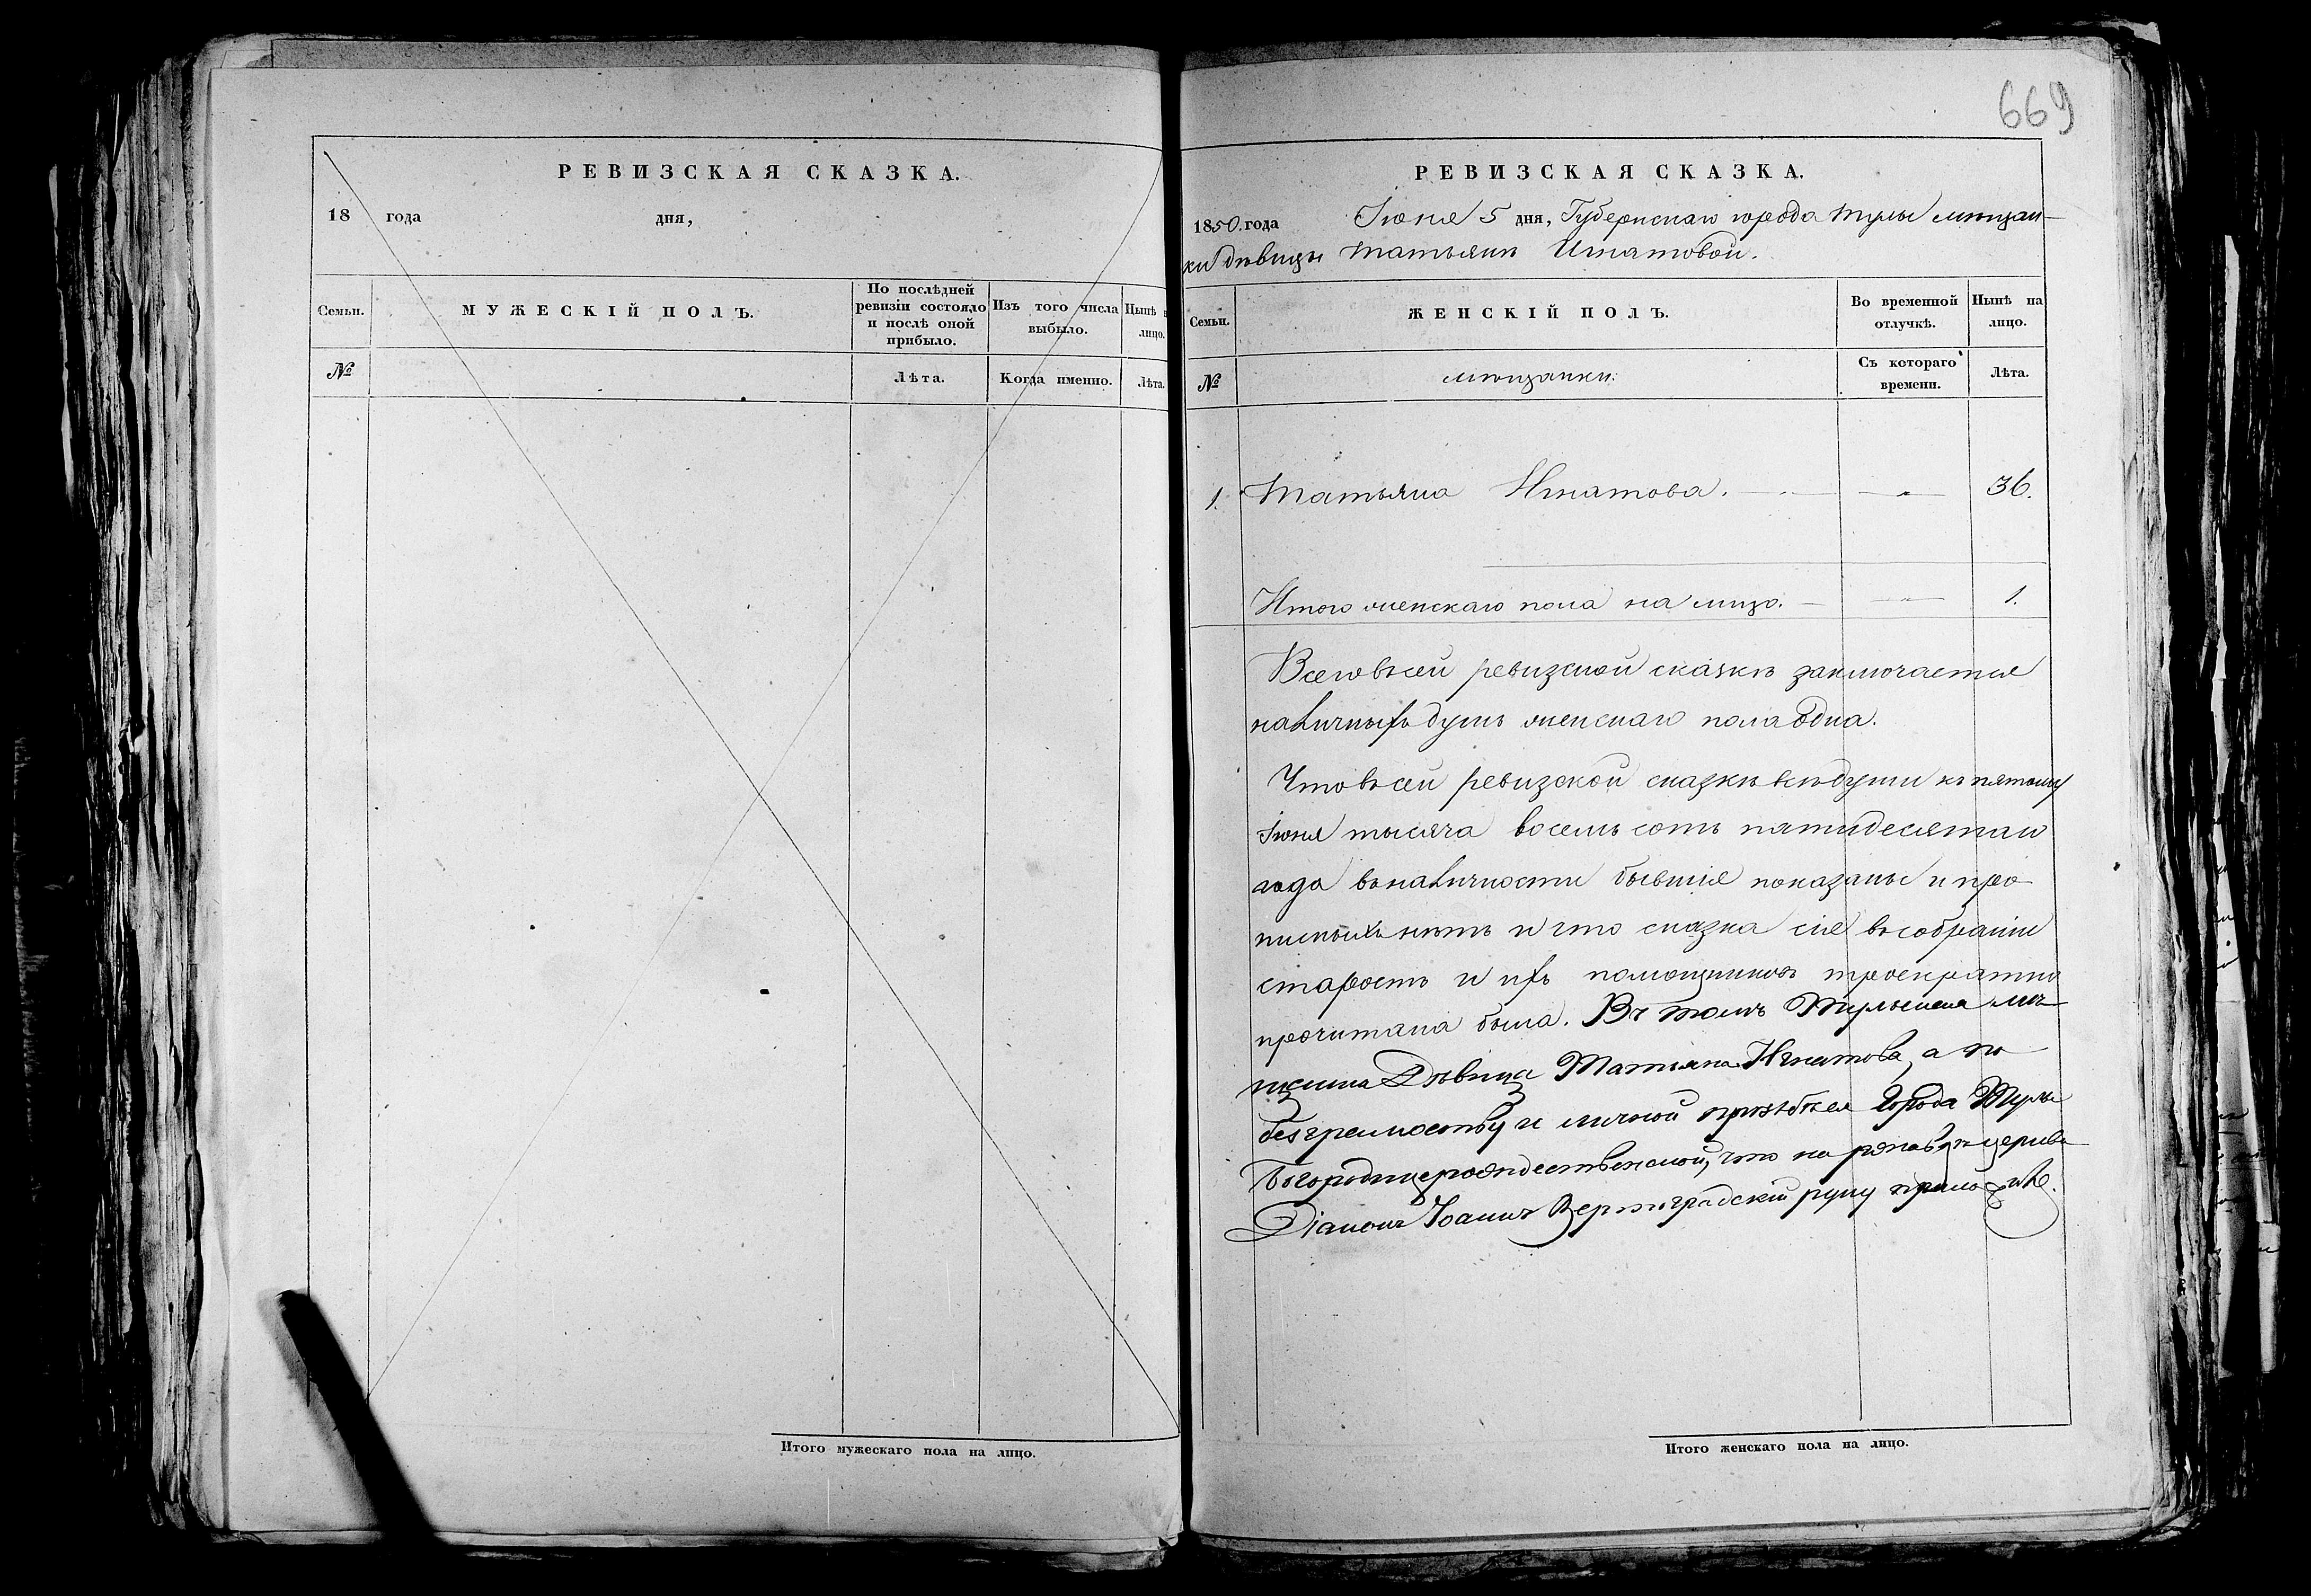 669
РЕВИЗСКАЯ СКАЗКА.
18 года дня,
Семьи.
МУЖЕСКІЙ ПОЛЪ.
По послѣдней ревизіи состояло и послѣ оной прибыло.
Изъ того числа выбыло.
Нынѣ на лицо.
№
Лѣта.
Когда именно.
Лѣта.
Итого мужескаго пола на лицо.
РЕВИЗСКАЯ СКАЗКА.
1850. года Іюня 5 дня, Губернскаго города Тулы мѣщан-
ки дѣвицы Татьяны Игнатовой.
Семьи.
ЖЕНСКІЙ ПОЛЪ.
Во временной отлучкѣ.
Нынѣ на лицо.
№
мѣщанки:
Съ котораго времени.
Лѣта.
1. Татьяна Игнатова. 36.
Итого женскаго пола на лицо. 1.
Всего въ сей ревизской сказкѣ заключается
наличныхъ душъ женскаго пола одна.
Что въ сей ревизской сказкѣ всѣ души къ пятому
Іюня тысяча восемь сотъ пятидесятаго
года въ наличности бывшія показаны и про
писныхъ нѣтъ и что сказка сія въ собраніи
старостъ и ихъ помощниковъ троекратно
прочитана была. Въ томъ Тульская мѣ-
щанка Дѣвица Татьяна Игнатова, а по
безграмотству и личной прозьбѣ ея Города Тулы
Богородицерождественской, что на ржавцѣ церкви
Діаконъ Іоаннъ Вертоградскій руку приложилъ.
Итого женскаго пола на лицо.